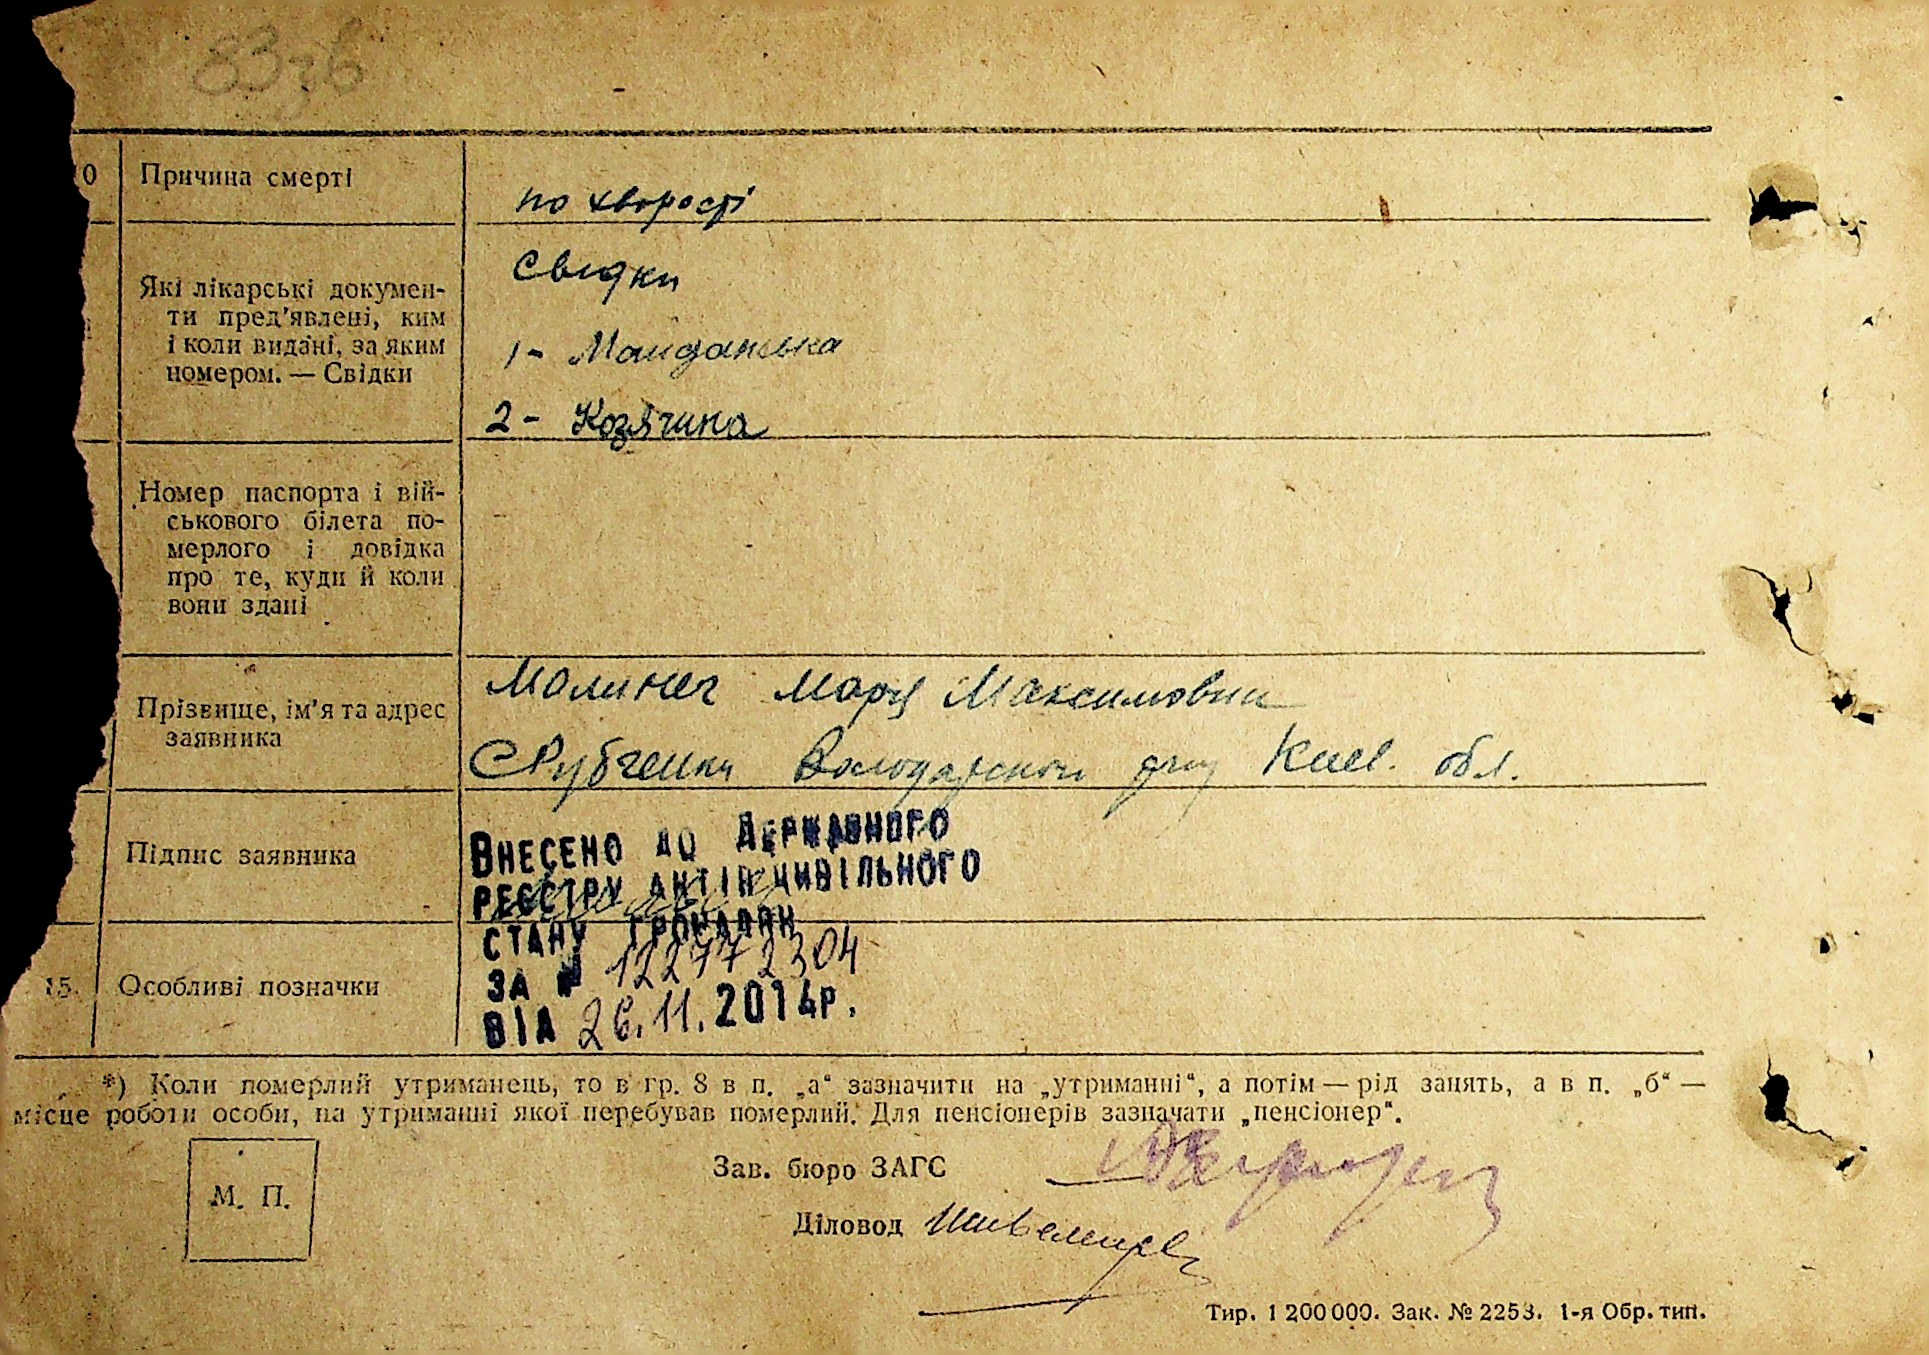 83зв
0 Причина смерті
по хворості
Які лікарські докумен-
ти пред'явлені, ким
і коли видані, за яким
номером. — Свідки
Свидки
1 - Майданська
2 - Козячина
Номер паспорта і вій-
ськового білета по-
мерлого і довідка
про те, куди й коли
вони здані
Прізвище, ім'я та адрес
заявника
Молинег Марія Максимовни
Рубченки Володарської Киев. обл.
Підпис заявника
Внесено до Державного
реєстру актів цивільного
стану громадян
за № 12277 2304
від 26.11.2014р.
15. Особливі позначки
*) Коли померлий утриманець, то в гр. 8 в п. „а“ зазначити на „утриманні“, а потім — рід занять, а в п. „б“ —
місце роботи особи, на утриманні якої перебував померлий. Для пенсіонерів зазначати „пенсіонер“.
М. П.
Зав. бюро ЗАГС
Діловод
Тир. 1 200 000. Зак. № 2253. 1-я Обр. тип.